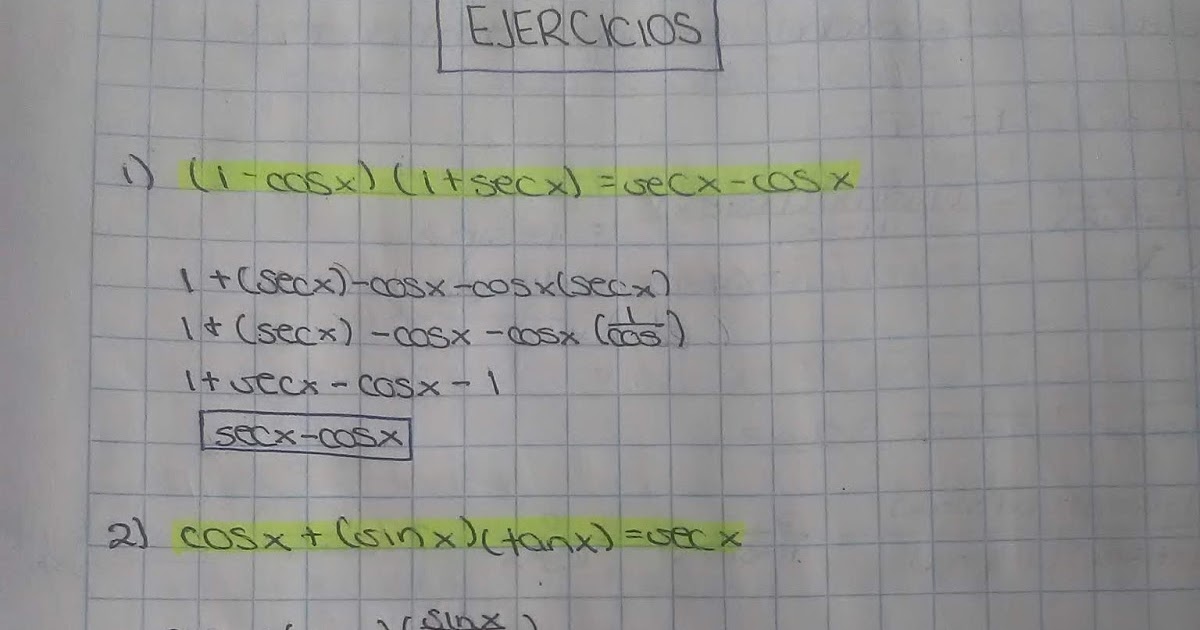 EJERCICIOS
1) (1-cosx) (1+secx) =secx-cosx
1+(secx)-cosx-cosx(secx)
1+(secx) -cosx -cosx (1/cos)
1+secx-cosx-1
secx-cosx
2) cosx+(sinx)(tanx)=secx
sinx